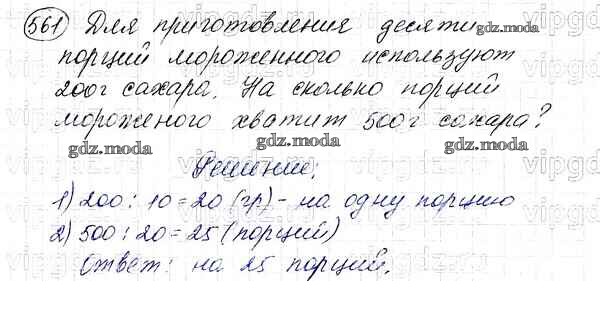 561 Для приготовления десяти
порций мороженного используют
200г сахара. На сколько порций
мороженого хватит 500г сахара?
gdz.moda
gdz.moda
gdz.moda
gdz.moda
Решение.
1) 200 : 10 = 20 (гр) - на одну порцию
2) 500 : 20 = 25 (порций)
Ответ: на 25 порций.